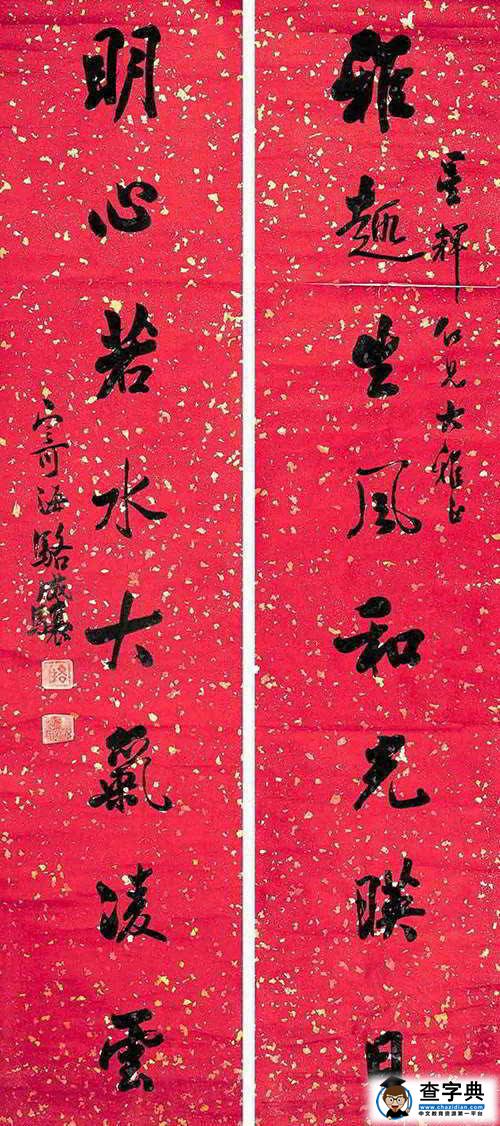 雅趣生風和光暎日
雲程仁兄大雅正
明心若水大氣凌雲
駱成驤
查字典
www.chazidian.com
中文教育资源第一平台